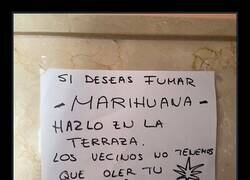 SI DESEAS FUMAR
- MARIHUANA -
HAZLO EN LA
TERRAZA.
LOS VECINOS NO TENEMOS
QUE OLER TU